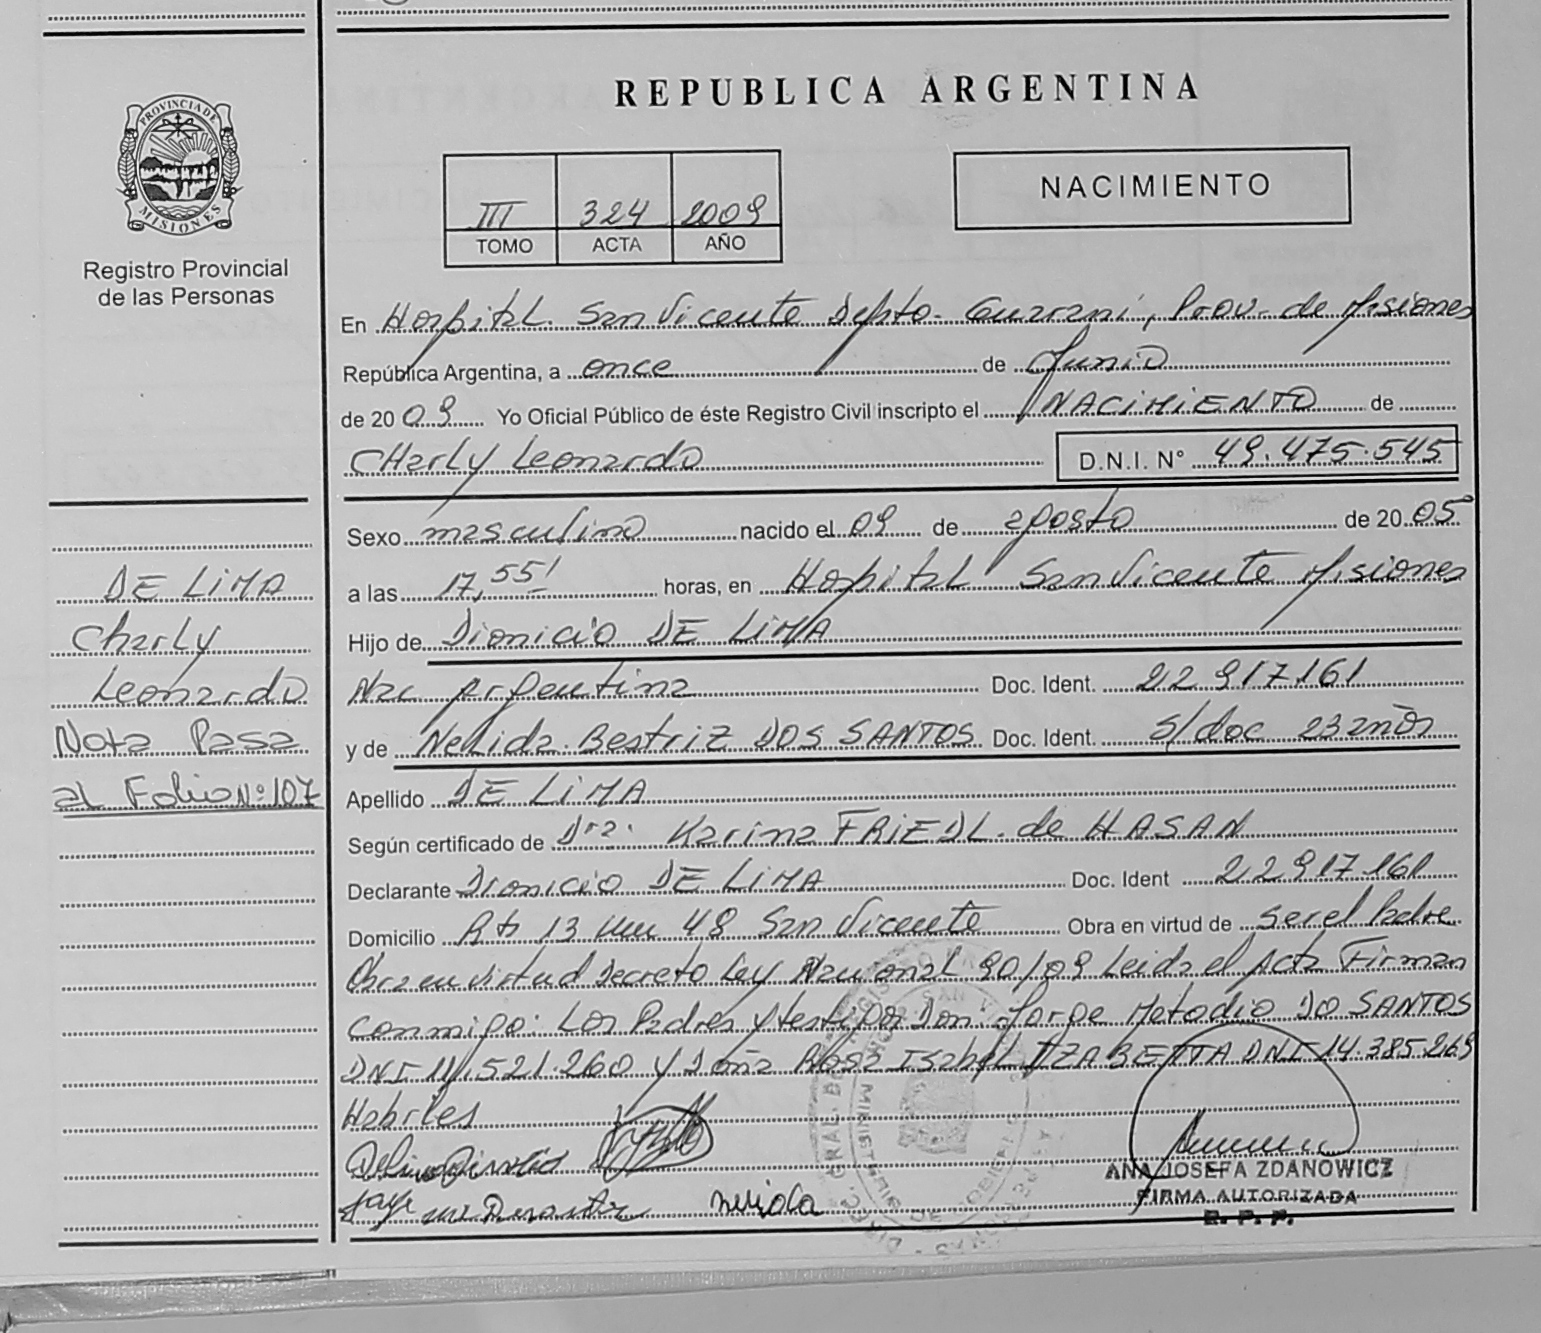 REPUBLICA ARGENTINA
PROVINCIA DE
MISIONES
Registro Provincial
de las Personas
III 324 2009
TOMO ACTA AÑO
NACIMIENTO
En Hospital San Vicente Depto. Guarani, Prov. de Misiones
República Argentina, a once de Junio
de 2009 Yo Oficial Público de éste Registro Civil inscripto el NACIMIENTO de
CHarly Leonardo D.N.I. N° 49.475.545
Sexo masculino nacido el 09 de agosto de 2005
a las 17,55' horas, en Hospital San Vicente Misiones
Hijo de Dionicio DE LIMA
Nac Argentina Doc. Ident. 22917161
y de Nelida Beatriz DOS SANTOS Doc. Ident. s/doc 23 años
Apellido DE LIMA
Según certificado de Dra. Karina FRIEDL de HASAN
Declarante Dionicio DE LIMA Doc. Ident 22917161
Domicilio Rta 13 km 48 San Vicente Obra en virtud de ser el Padre
Obra en virtud Decreto Ley Nacional 90/09 Leida el Acta Firman
conmigo: Los Padres y testigos Don Jorge Metodio DO SANTOS
DNI 11.521.260 y Doña Rosa Isabel DNI 14.385.269
Habiles
ANA JOSEFA ZDANOWICZ
FIRMA AUTORIZADA
R. P. P.
DE LIMA
Charly
Leonardo
Nota Pasa
al Folio N°107